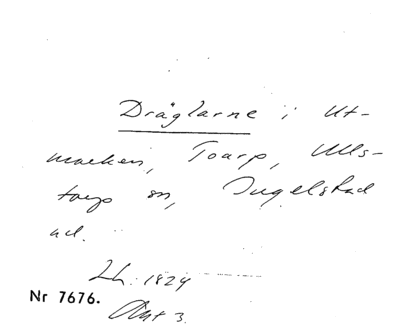 Dräglarne i Ut-
marken, Toarp, Ulls-
torps sn, Ingelstad
hd.
Lh. 1824
Nr 7676.
Akt 3.